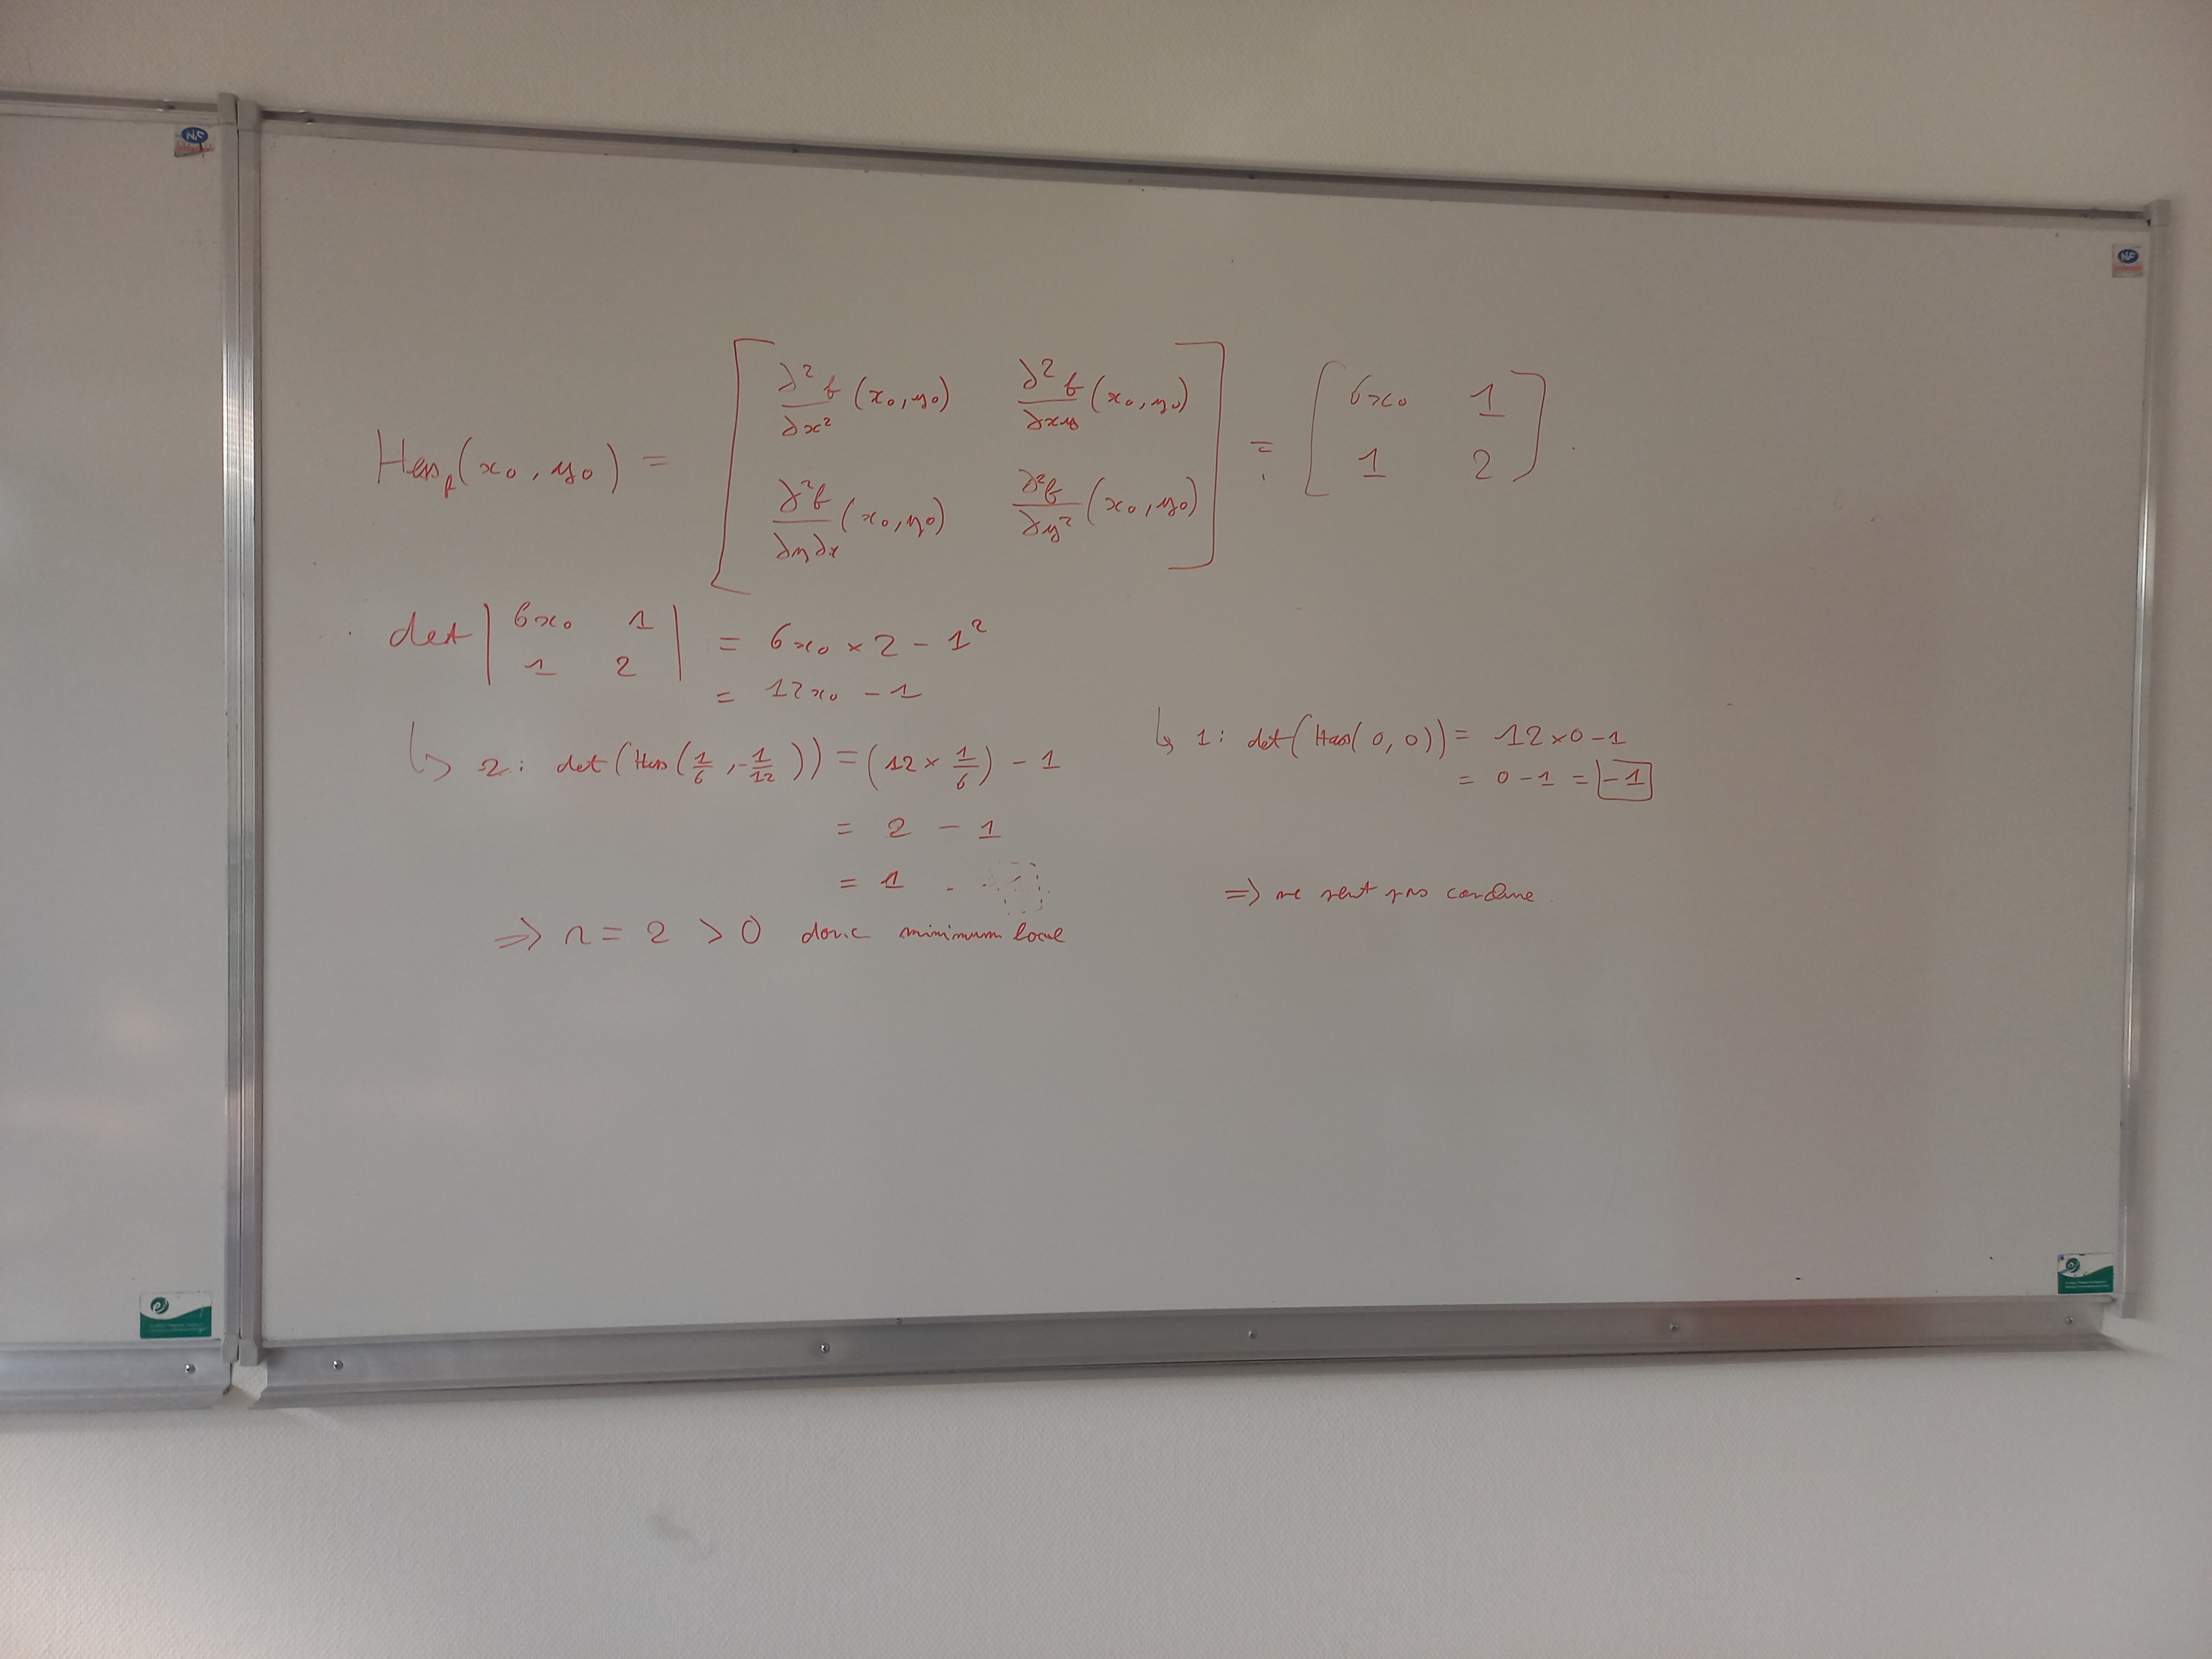 Hess_f(x₀, y₀) = [ ∂²f/∂x² (x₀, y₀) ∂²f/∂xy (x₀, y₀) ; ∂²f/∂y∂x (x₀, y₀) ∂²f/∂y² (x₀, y₀) ] = [ 6x₀ 1 ; 1 2 ].
det | 6x₀ 1 ; 1 2 | = 6x₀ × 2 - 1²
= 12x₀ - 1
↳ 2: det(Hess(1/6, -1/12)) = (12 × 1/6) - 1
= 2 - 1
= 1
⇒ r = 2 > 0 donc minimum local
↳ 1: det(Hess(0, 0)) = 12×0-1
= 0-1 = -1
⇒ ne peut pas conclure
NF
NF